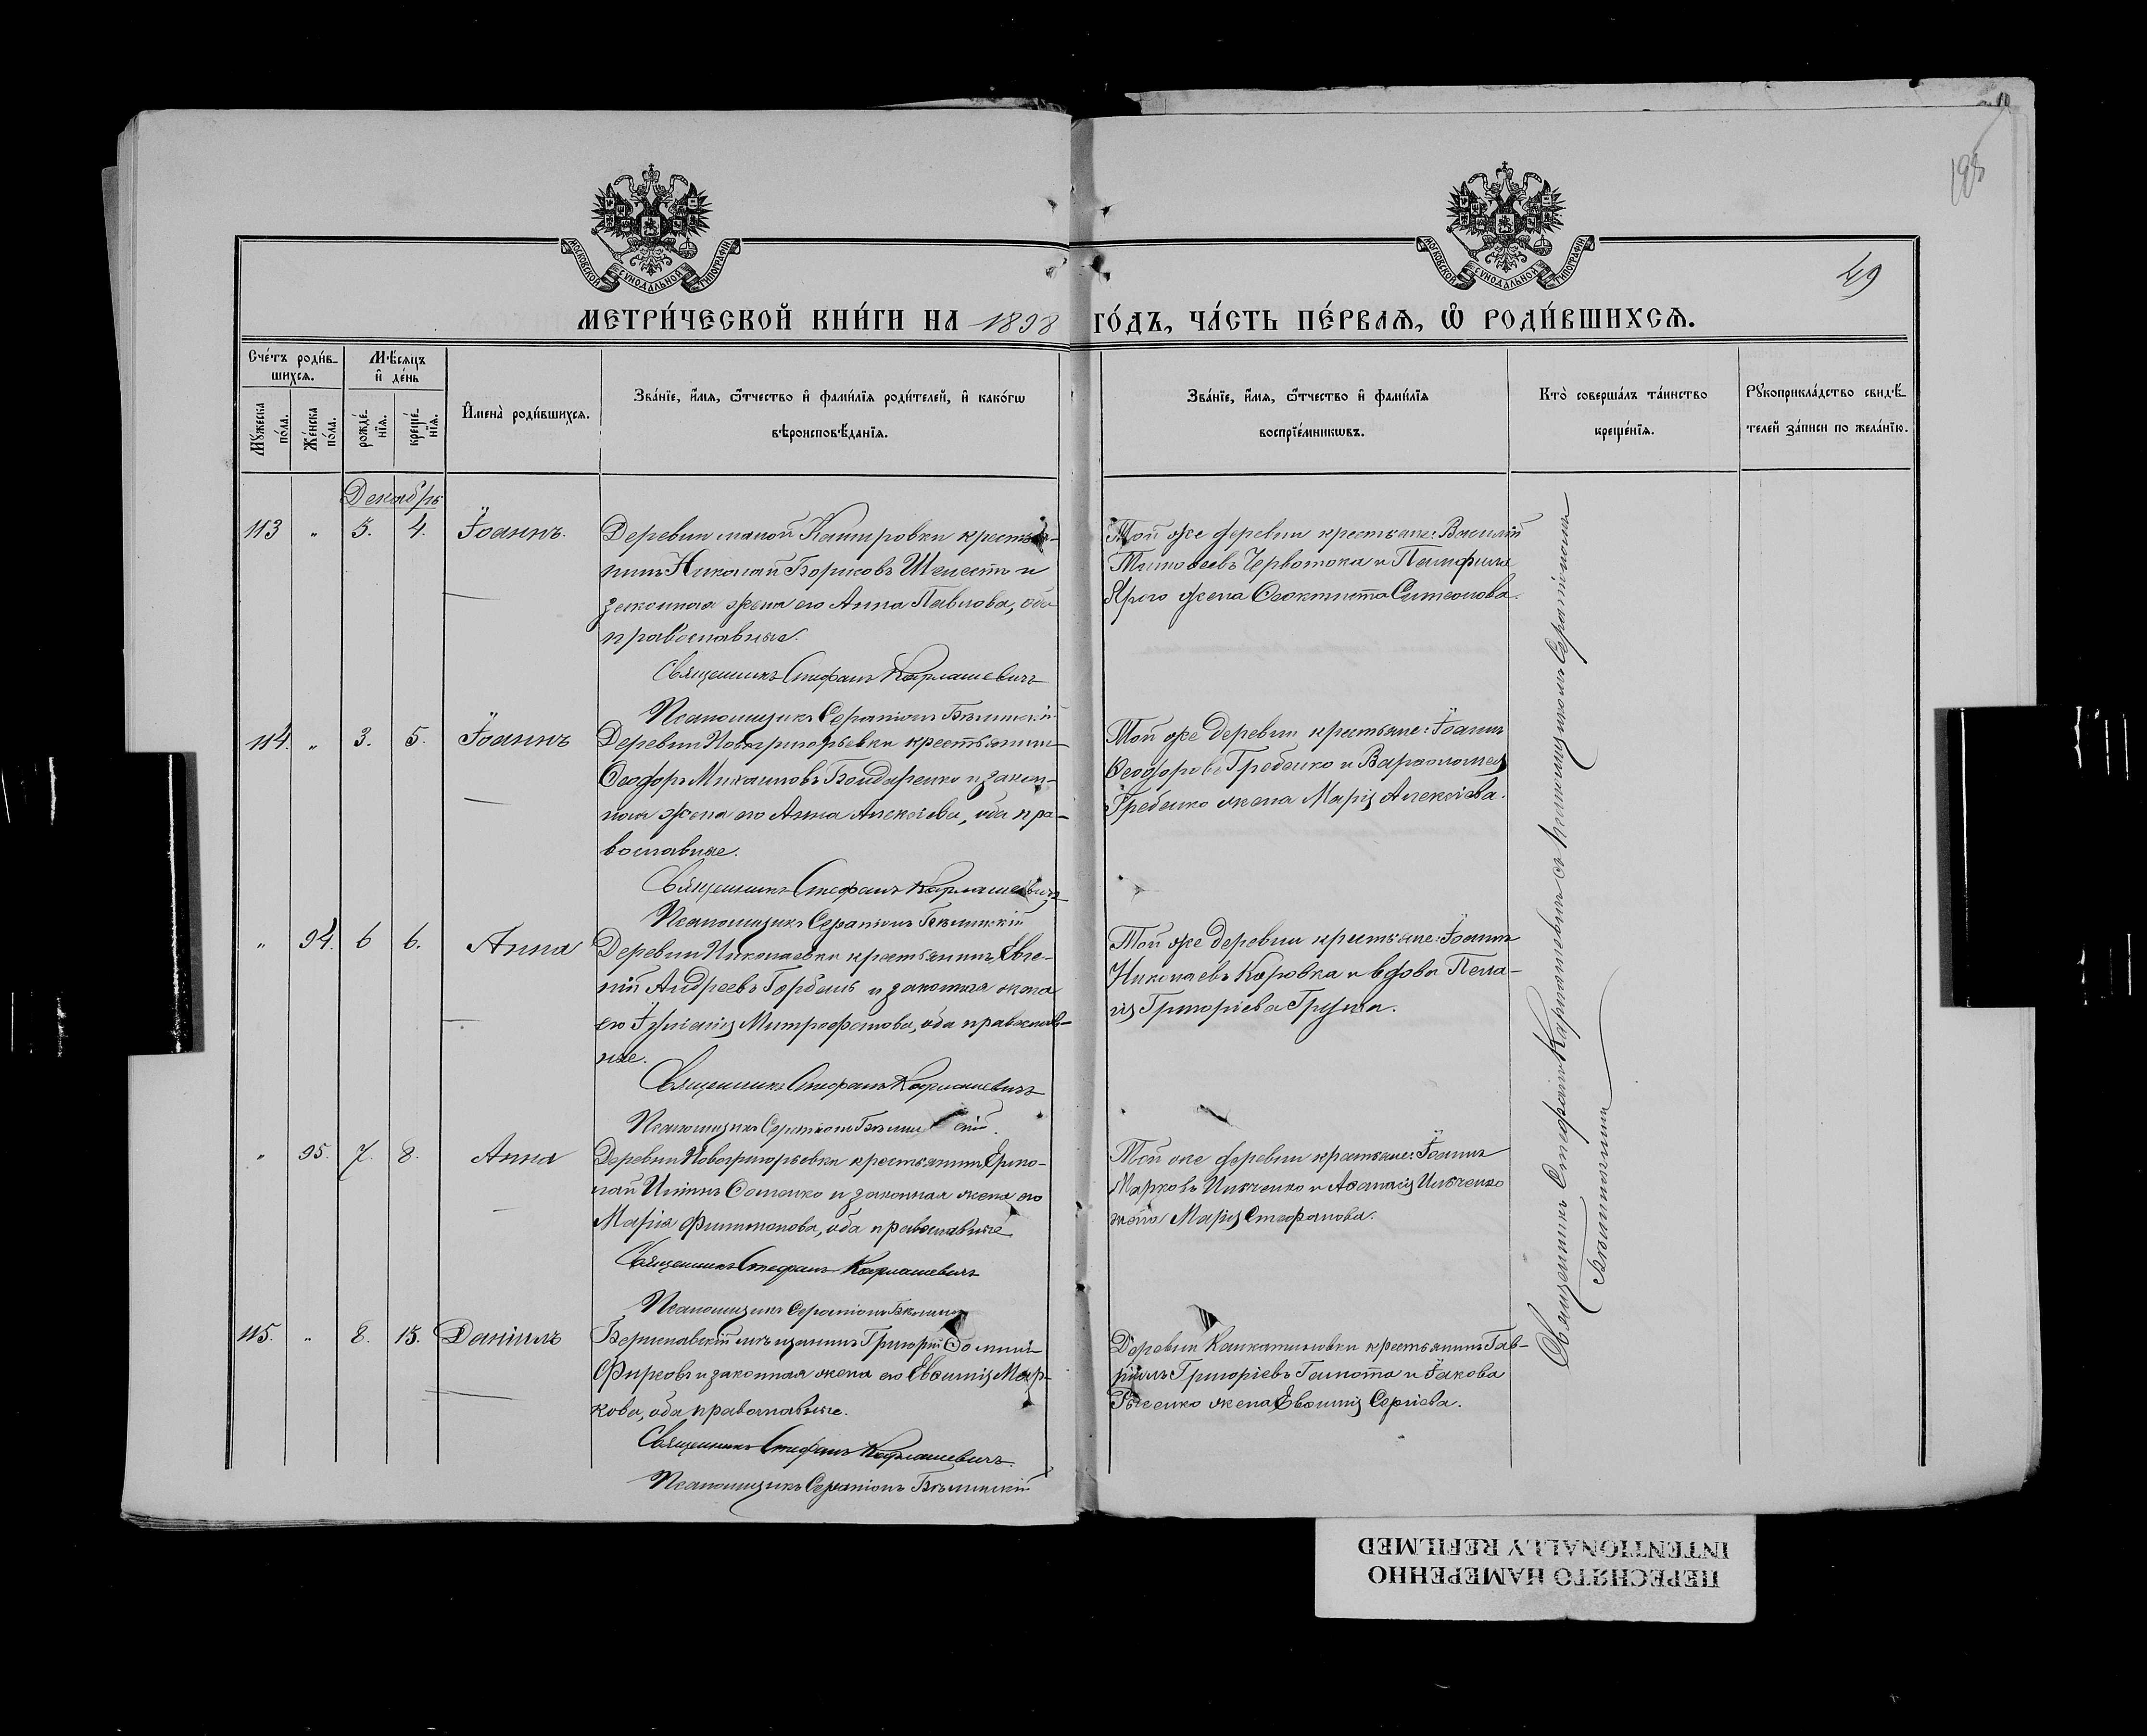 198
МОСКОВСКОЙ СѴНОДАЛЬНОЙ ТИПОГРАФІИ
МОСКОВСКОЙ СѴНОДАЛЬНОЙ ТИПОГРАФІИ
49
МЕТРИ́ЧЕСКОЙ КНИ́ГИ НА 1898 ГО́ДЪ, ЧА́СТЬ ПЕ́РВАѦ, Ѡ҆ РОДИ́ВШИХСѦ.
Сче́тъ роди́в-
шихсѧ.
Мꙋ́жеска по́ла.
Же́нска по́ла.
Мѣ́сѧцъ
и҆ де́нь
рожде́-
нїѧ.
креще́-
нїѧ.
И҆мена̀ роди́вшихсѧ.
Зва́нїе, и҆́мѧ, ѻ҆́тчество и҆ фами́лїѧ роди́телей, и҆ како́гѡ
вѣроисповѣ́данїѧ.
Зва́нїе, и҆́мѧ, ѻ҆́тчество и҆ фами́лїѧ
воспрїе́мникѡвъ.
Кто̀ соверша́лъ та́инство
креще́нїѧ.
Рꙋкоприкла́дство свидѣ́-
телей за́писи по жела́нїю.
Декабрь
113 " 3. 4. Іоаннъ.
Деревни малой Кашировки крестья-
нинъ Николай Борисовъ Шелестъ и
законная жена его Анна Павлова, оба
православные.
Священникъ Стефанъ Карпашевичъ
Псаломщикъ Серапіонъ
Той же деревни крестьяне: Василій
Тимоѳеевъ Червотока и Памфила
Ярого жена Ѳеоктиста Симеонова.
114. " 3. 5. Іоаннъ
Деревни Новогригорьевки крестьянинъ
Ѳеодоръ Михаиловъ Бондаренко и закон-
ная жена его Анна Алексіева, оба пра-
вославные.
Священникъ Стефанъ Карпашевичъ
Псаломщикъ Серапіонъ
Той же деревни крестьяне: Іоаннъ
Ѳеодоровъ Гребенко и Варѳоломея
Гребенко жена Марія Алексіева.
" 94. 6 6. Анна
Деревни Николаевки крестьянинъ Евге-
ній Андреевъ Горбань и законная жена
его Іуліанія Митрофанова, оба православ-
ные.
Священникъ Стефанъ Карпашевичъ
Псаломщикъ Серапіонъ
Той же деревни крестьяне: Іоаннъ
Николаевъ Коровка и вдова Пела-
гія Григоріева Груша.
" 95. 7. 8. Анна
Деревни Новогригорьевки крестьянинъ Ермо-
лай Ѳоменко и законная жена его
Марія Филимонова, оба православные
Священникъ Стефанъ Карпашевичъ
Псаломщикъ Серапіонъ
Той же деревни крестьяне: Іоаннъ
Марковъ Ильченко и Аѳанасія Ильченко
жена Марія Стефанова.
115. " 8. 13. Даніилъ
Бериславскій мѣщанинъ Григорій Ѳоминъ
Фирсовъ и законная жена его Евѳимія Мар-
кова, оба православные.
Священникъ Стефанъ Карпашевичъ.
Псаломщикъ Серапіонъ
Деревни крестьянинъ Гав-
ріилъ Григоріевъ и Іакова
Лысенко жена Евѳимія Сергіева.
Священникъ Стефанъ Карпашевичъ съ псаломщикомъ Серапіономъ
ПЕРЕСНЯТО НАМЕРЕННО
INTENTIONALLY REFILMED